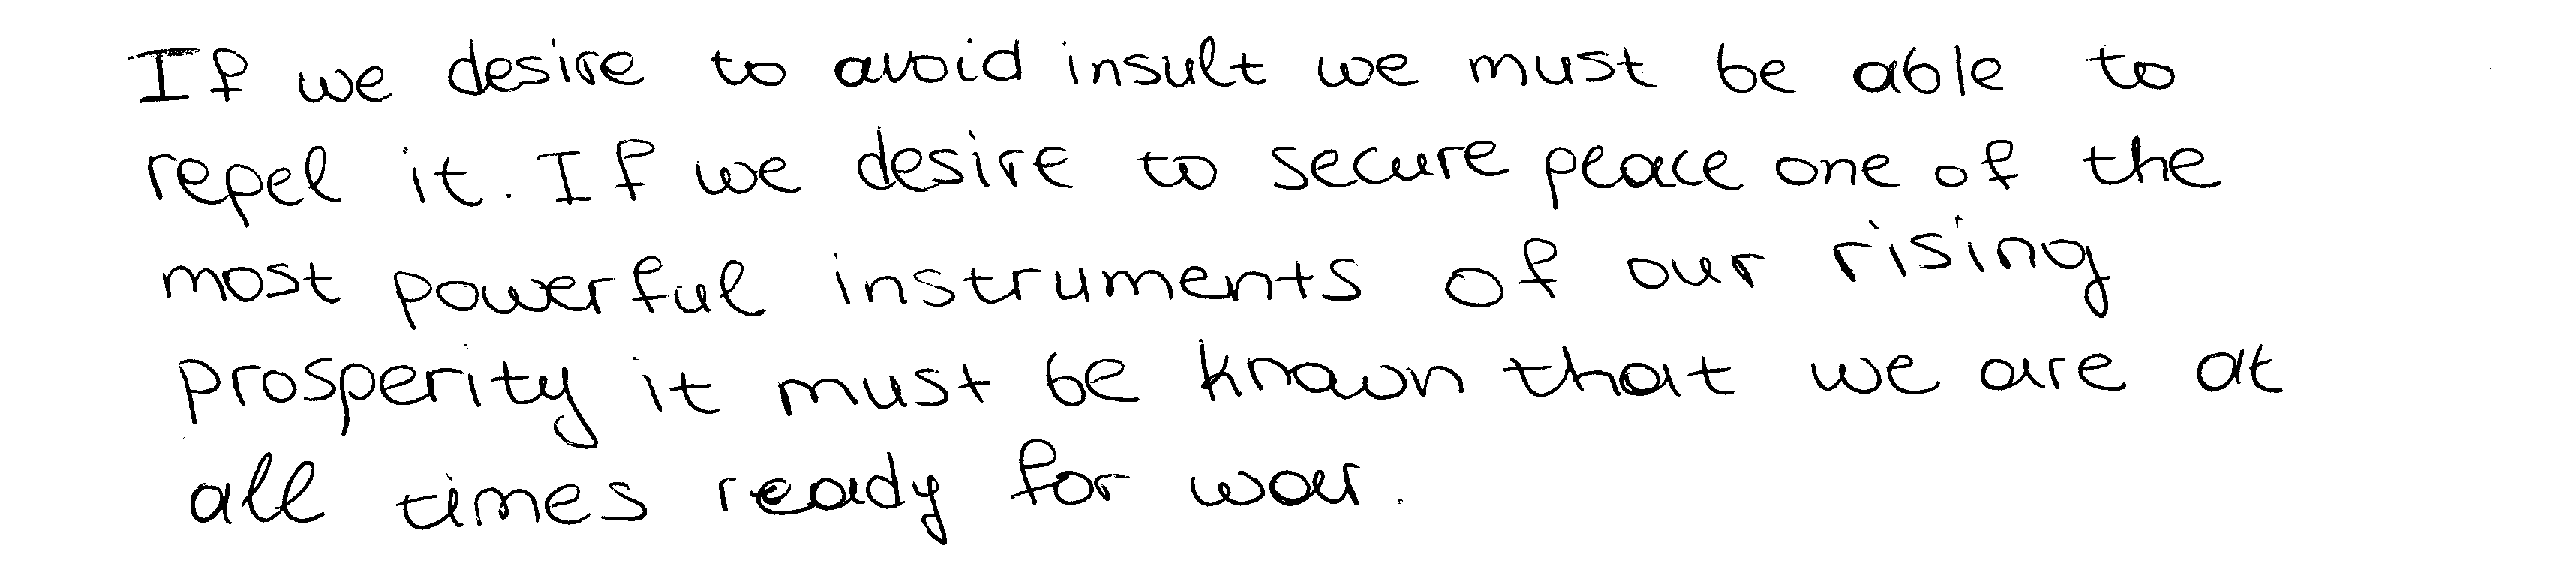 If we desire to avoid insult we must be able to
repel it. If we desire to secure peace one of the
most powerful instruments of our rising
prosperity it must be known that we are at
all times ready for war.